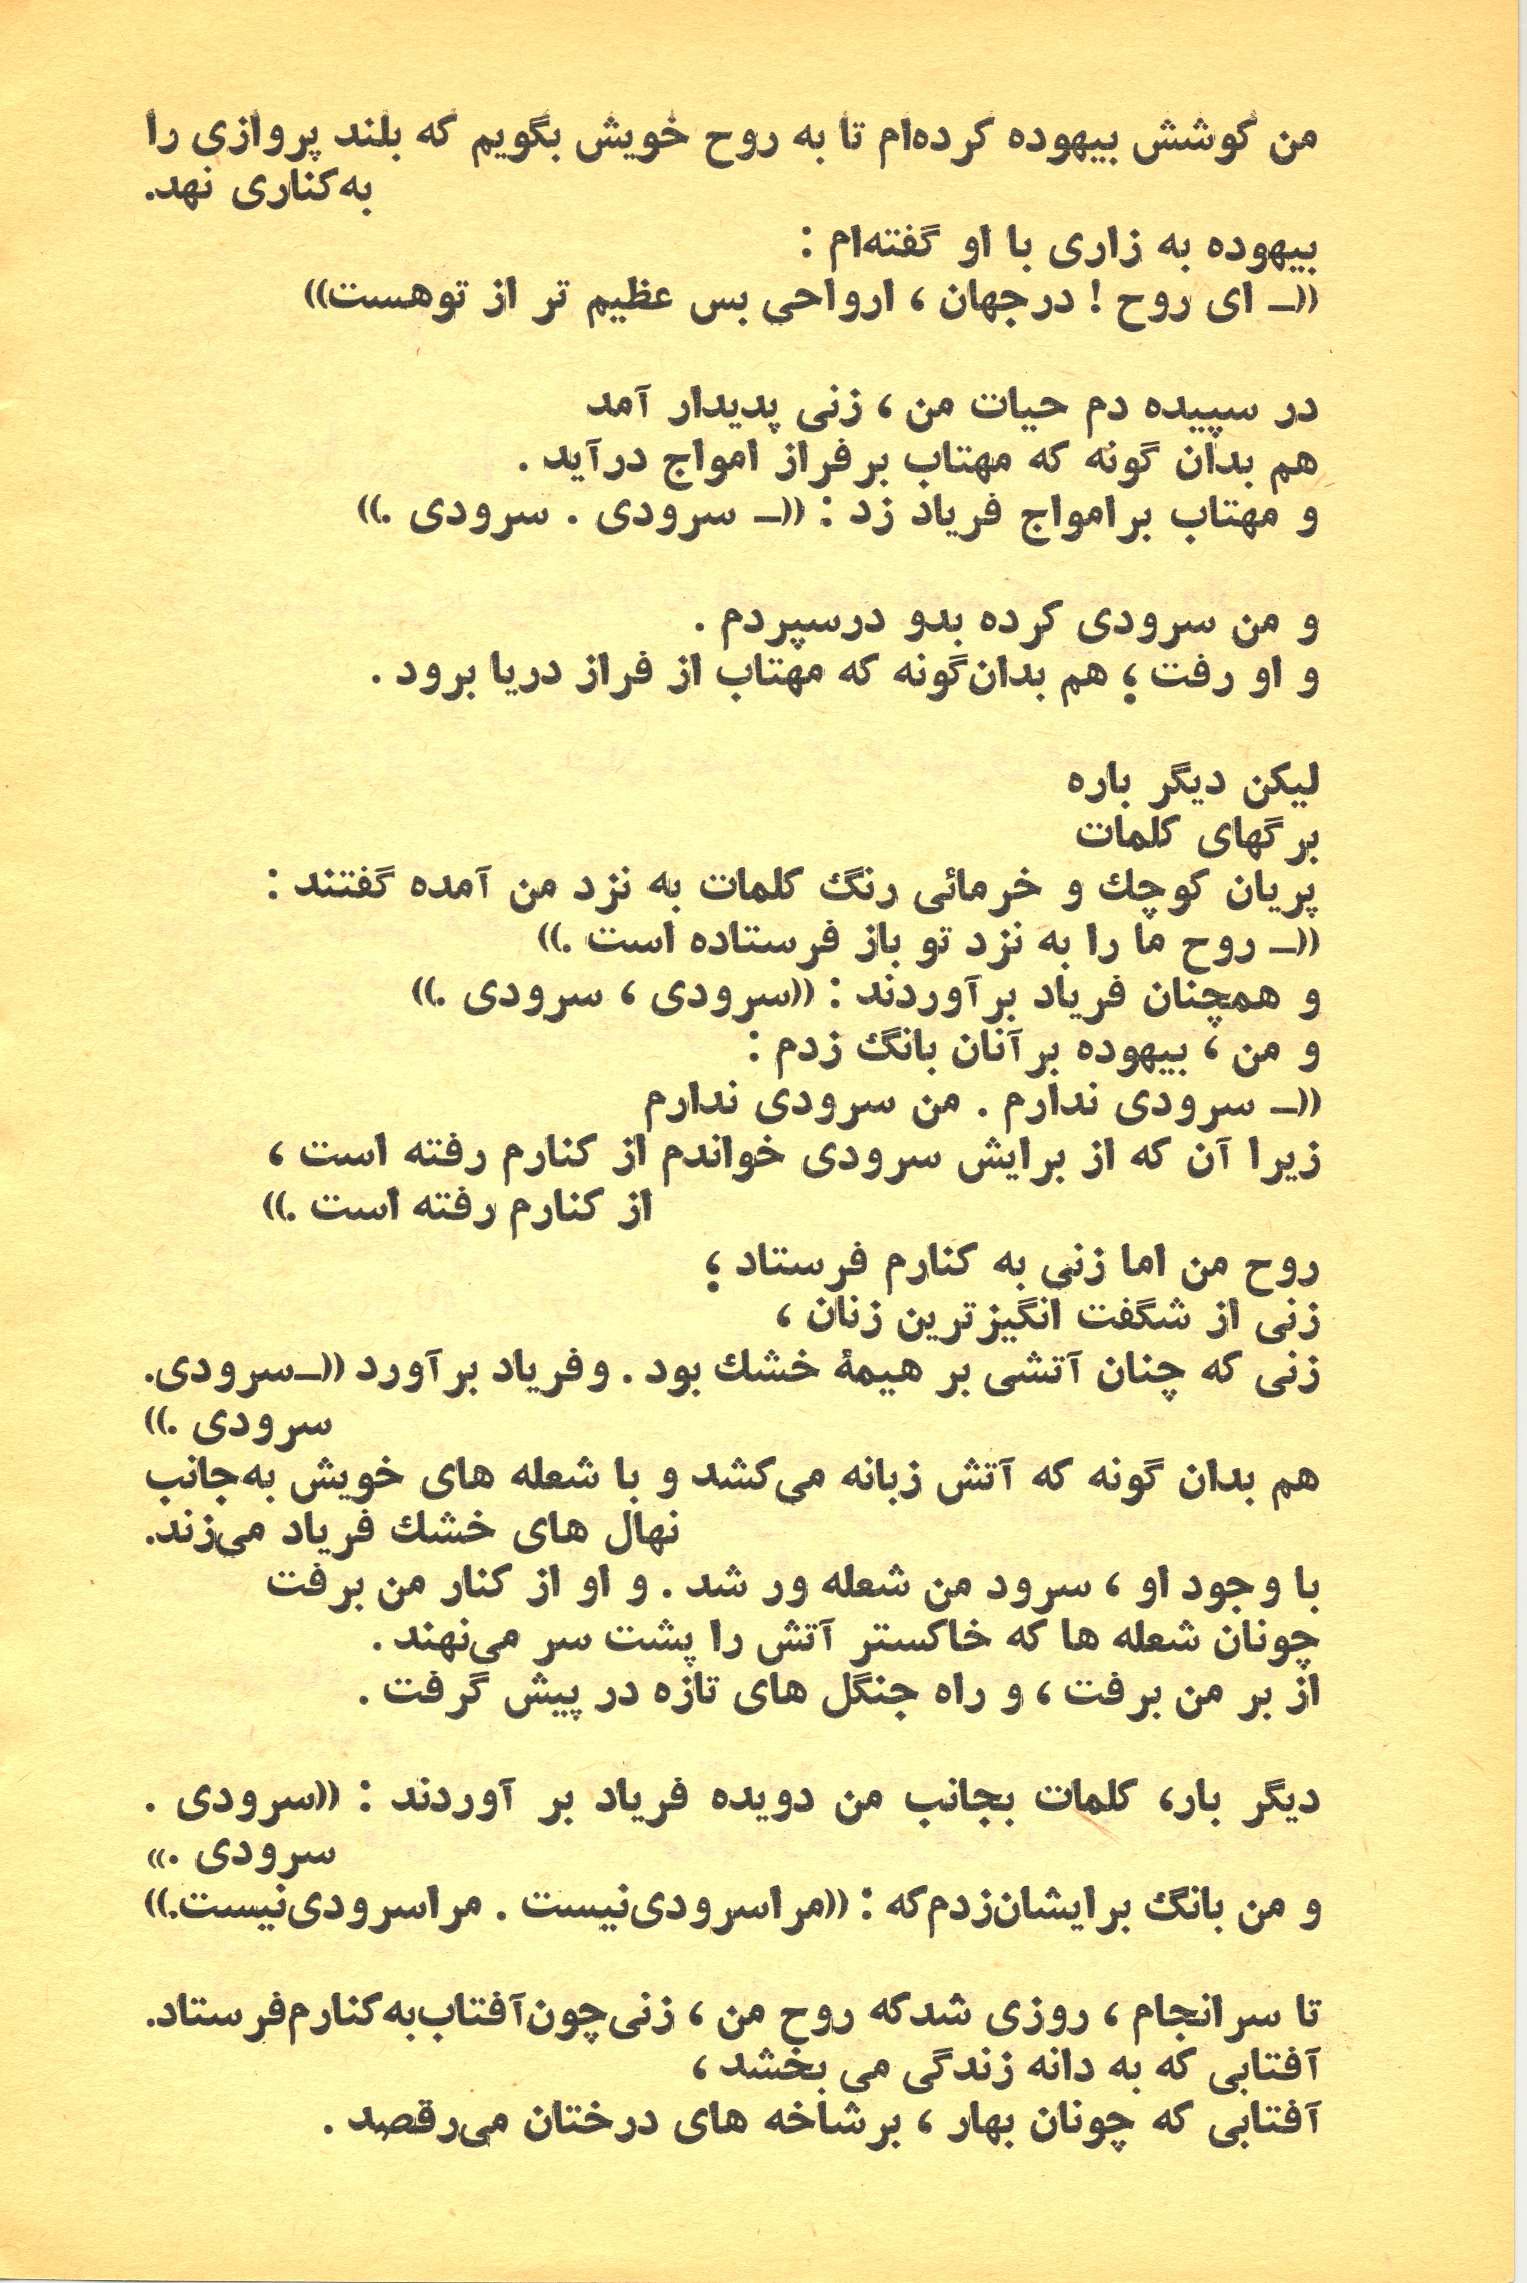 من کوشش بیهوده کرده‌ام تا به روح خویش بگویم که بلند پروازی را
به‌کناری نهد.
بیهوده به زاری با او گفته‌ام :
((ـ ای روح ! درجهان ، ارواحی بس عظیم تر از توهست))
در سپیده دم حیات من ، زنی پدیدار آمد
هم بدان گونه که مهتاب برفراز امواج درآید .
و مهتاب برامواج فریاد زد : ((ـ سرودی . سرودی .))
و من سرودی کرده بدو درسپردم .
و او رفت ؛ هم بدان‌گونه که مهتاب از فراز دریا برود .
لیکن دیگر باره
برگهای کلمات
پریان کوچك و خرمائی رنگ کلمات به نزد من آمده گفتند :
((ـ روح ما را به نزد تو باز فرستاده است .))
و همچنان فریاد برآوردند : ((سرودی ، سرودی .))
و من ، بیهوده برآنان بانگ زدم :
((ـ سرودی ندارم . من سرودی ندارم
زیرا آن که از برایش سرودی خواندم از کنارم رفته است ،
از کنارم رفته است .))
روح من اما زنی به کنارم فرستاد ؛
زنی از شگفت انگیزترین زنان ،
زنی که چنان آتشی بر هیمهٔ خشك بود . وفریاد برآورد ((ـسرودی.
سرودی .))
هم بدان گونه که آتش زبانه می‌کشد و با شعله های خویش به‌جانب
نهال های خشك فریاد می‌زند.
با وجود او ، سرود من شعله ور شد . و او از کنار من برفت
چونان شعله ها که خاکستر آتش را پشت سر می‌نهند .
از بر من برفت ، و راه جنگل های تازه در پیش گرفت .
دیگر بار، کلمات بجانب من دویده فریاد بر آوردند : ((سرودی .
سرودی .»
و من بانگ برایشان‌زدم‌که : ((مراسرودی‌نیست . مراسرودی‌نیست.))
تا سرانجام ، روزی شدکه روح من ، زنی‌چون‌آفتاب‌به‌کنارم‌فرستاد.
آفتابی که به دانه زندگی می بخشد ،
آفتابی که چونان بهار ، برشاخه های درختان می‌رقصد .